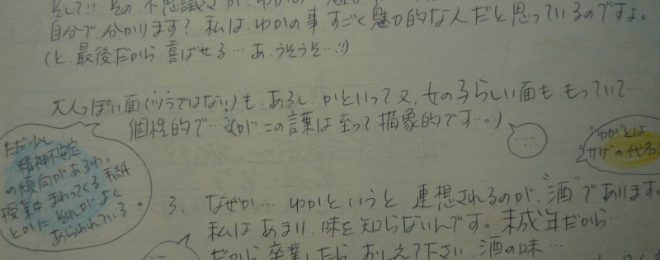 そして!! その不思議さが、わかの
自分で、分かります? 私は、わかの事、すごく魅力的な人だと思っているのですよ。
(と、最後だから 喜ばせる…あ、うそうそ…!)
大人っぽい面(ヅラではない!)も、あるし かといって又、女の子らしい面も もっていて
個性的で…(が この言葉は至って 抽象的です…。)
ただ少し
精神不安定
の傾向があるわ。
授業中 まわってくる 手紙
とかに それが よく
あらわれている…
わかとは
サゲの代名
3. なぜか… わかというと 連想されるのが、"酒"であります。
私は あまり 味を知らないんです。未成年だから…
だから 卒業したら おしえて下さい、酒の味…